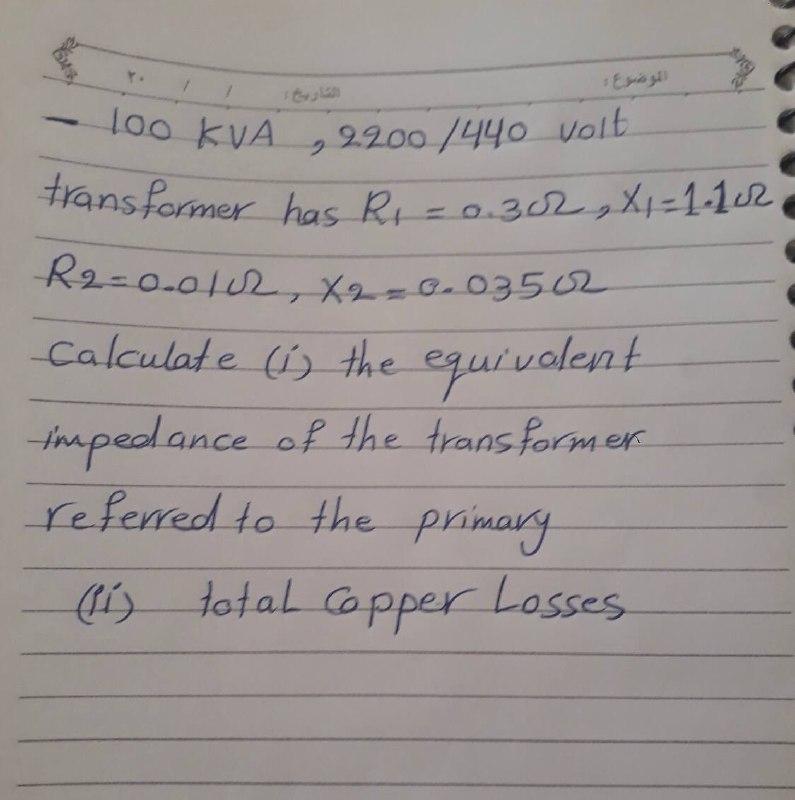 الموضوع: التاريخ: / / ٢٠
- 100 KVA , 2200/440 volt
transformer has R1 = 0.3Ω, X1=1.1Ω
R2=0.01Ω, X2=0.035Ω
Calculate (i) the equivalent
impedance of the transformer
referred to the primary
(ii) total Copper Losses